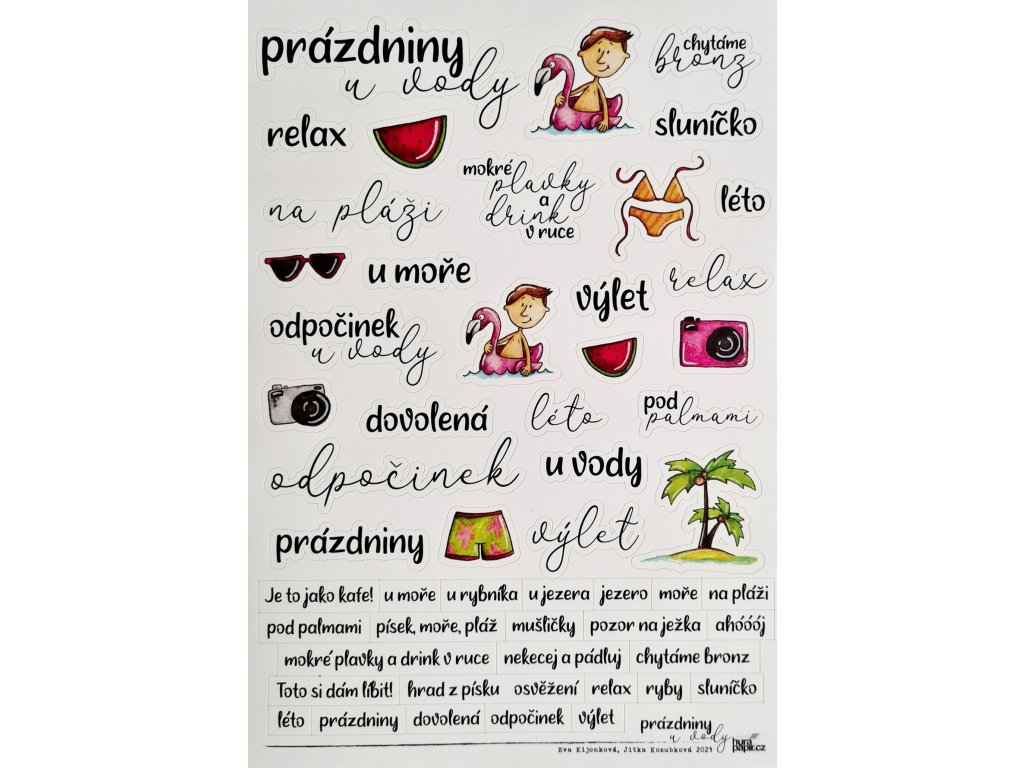 prázdniny
u vody
chytáme
bronz
relax
sluníčko
mokré
plavky
a
drink
v ruce
na pláži
léto
u moře
relax
výlet
odpočinek
u vody
dovolená
léto
pod
palmami
odpočinek
u vody
prázdniny
výlet
Je to jako kafe! u moře u rybníka u jezera jezero moře na pláži
pod palmami písek, moře, pláž mušličky pozor na ježka ahóóój
mokré plavky a drink v ruce nekecej a pádluj chytáme bronz
Toto si dám líbit! hrad z písku osvěžení relax ryby sluníčko
léto prázdniny dovolená odpočinek výlet prázdniny
u vody
hurá
papír.cz
Eva Kijonková, Jitka Kozubková 2023